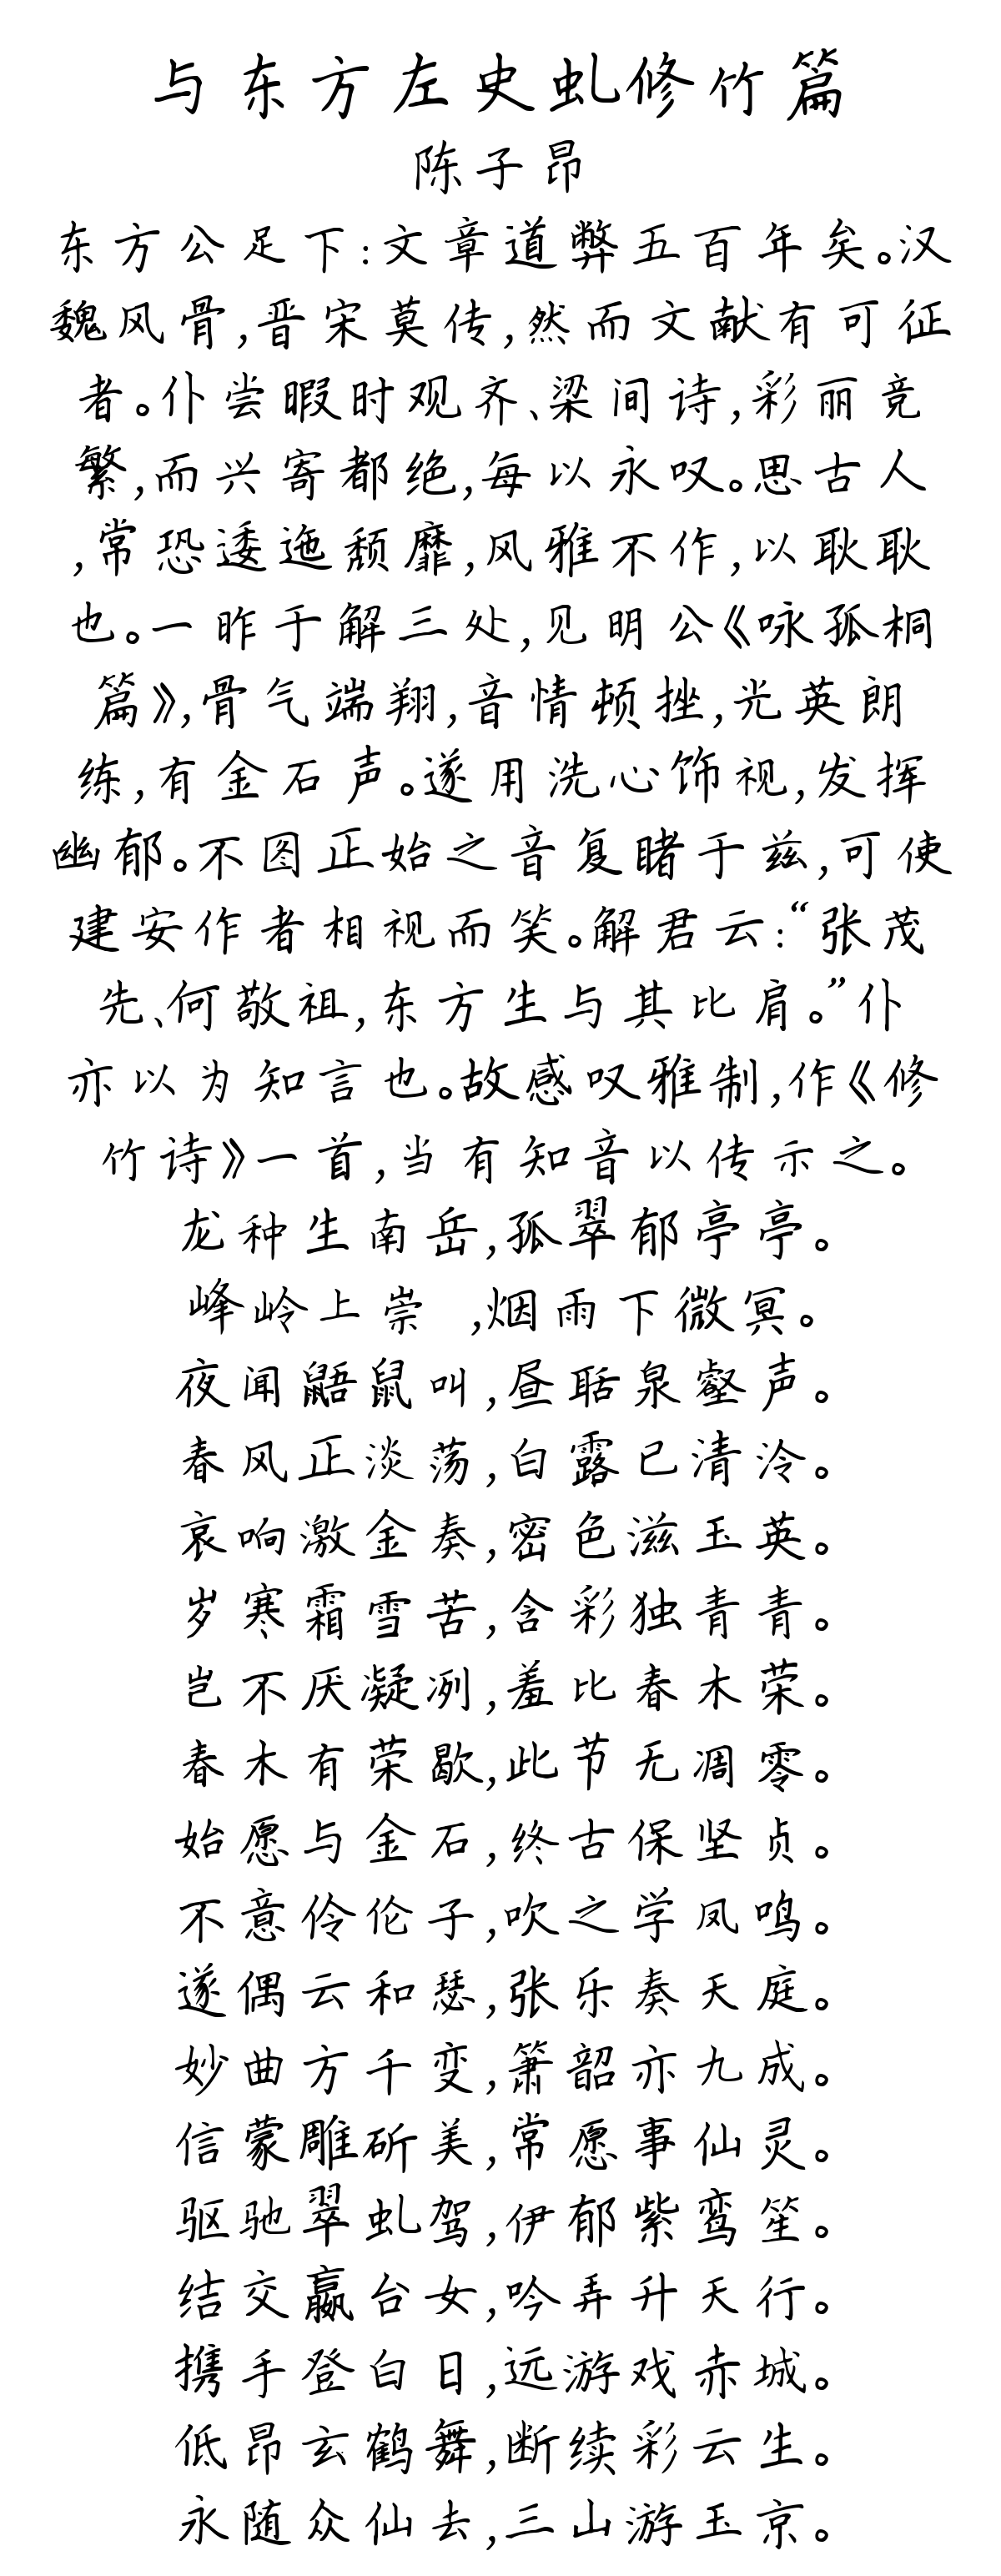 与东方左史虬修竹篇
陈子昂
东方公足下:文章道弊五百年矣。汉
魏风骨,晋宋莫传,然而文献有可征
者。仆尝暇时观齐、梁间诗,彩丽竞
繁,而兴寄都绝,每以永叹。思古人
,常恐逶迤颓靡,风雅不作,以耿耿
也。一昨于解三处,见明公《咏孤桐
篇》,骨气端翔,音情顿挫,光英朗
练,有金石声。遂用洗心饰视,发挥
幽郁。不图正始之音复睹于兹,可使
建安作者相视而笑。解君云:“张茂
先、何敬祖,东方生与其比肩。”仆
亦以为知言也。故感叹雅制,作《修
竹诗》一首,当有知音以传示之。
龙种生南岳,孤翠郁亭亭。
峰岭上崇 ,烟雨下微冥。
夜闻鼯鼠叫,昼聒泉壑声。
春风正淡荡,白露已清泠。
哀响激金奏,密色滋玉英。
岁寒霜雪苦,含彩独青青。
岂不厌凝冽,羞比春木荣。
春木有荣歇,此节无凋零。
始愿与金石,终古保坚贞。
不意伶伦子,吹之学凤鸣。
遂偶云和瑟,张乐奏天庭。
妙曲方千变,箫韶亦九成。
信蒙雕斫美,常愿事仙灵。
驱驰翠虬驾,伊郁紫鸾笙。
结交嬴台女,吟弄升天行。
携手登白日,远游戏赤城。
低昂玄鹤舞,断续彩云生。
永随众仙去,三山游玉京。